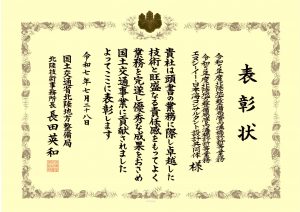 表彰状
エヌシーイー・日本海コンサルタント設計共同体 様
貴社は頭書の業務に際し卓越した
技術と旺盛なる責任感をもってよく
業務を完遂し優秀な成果をおさめ
国土交通事業に貢献されました
よってここに表彰します
令和七年七月二十八日
国土交通省北陸地方整備局
北陸技術事務所長 長田英和